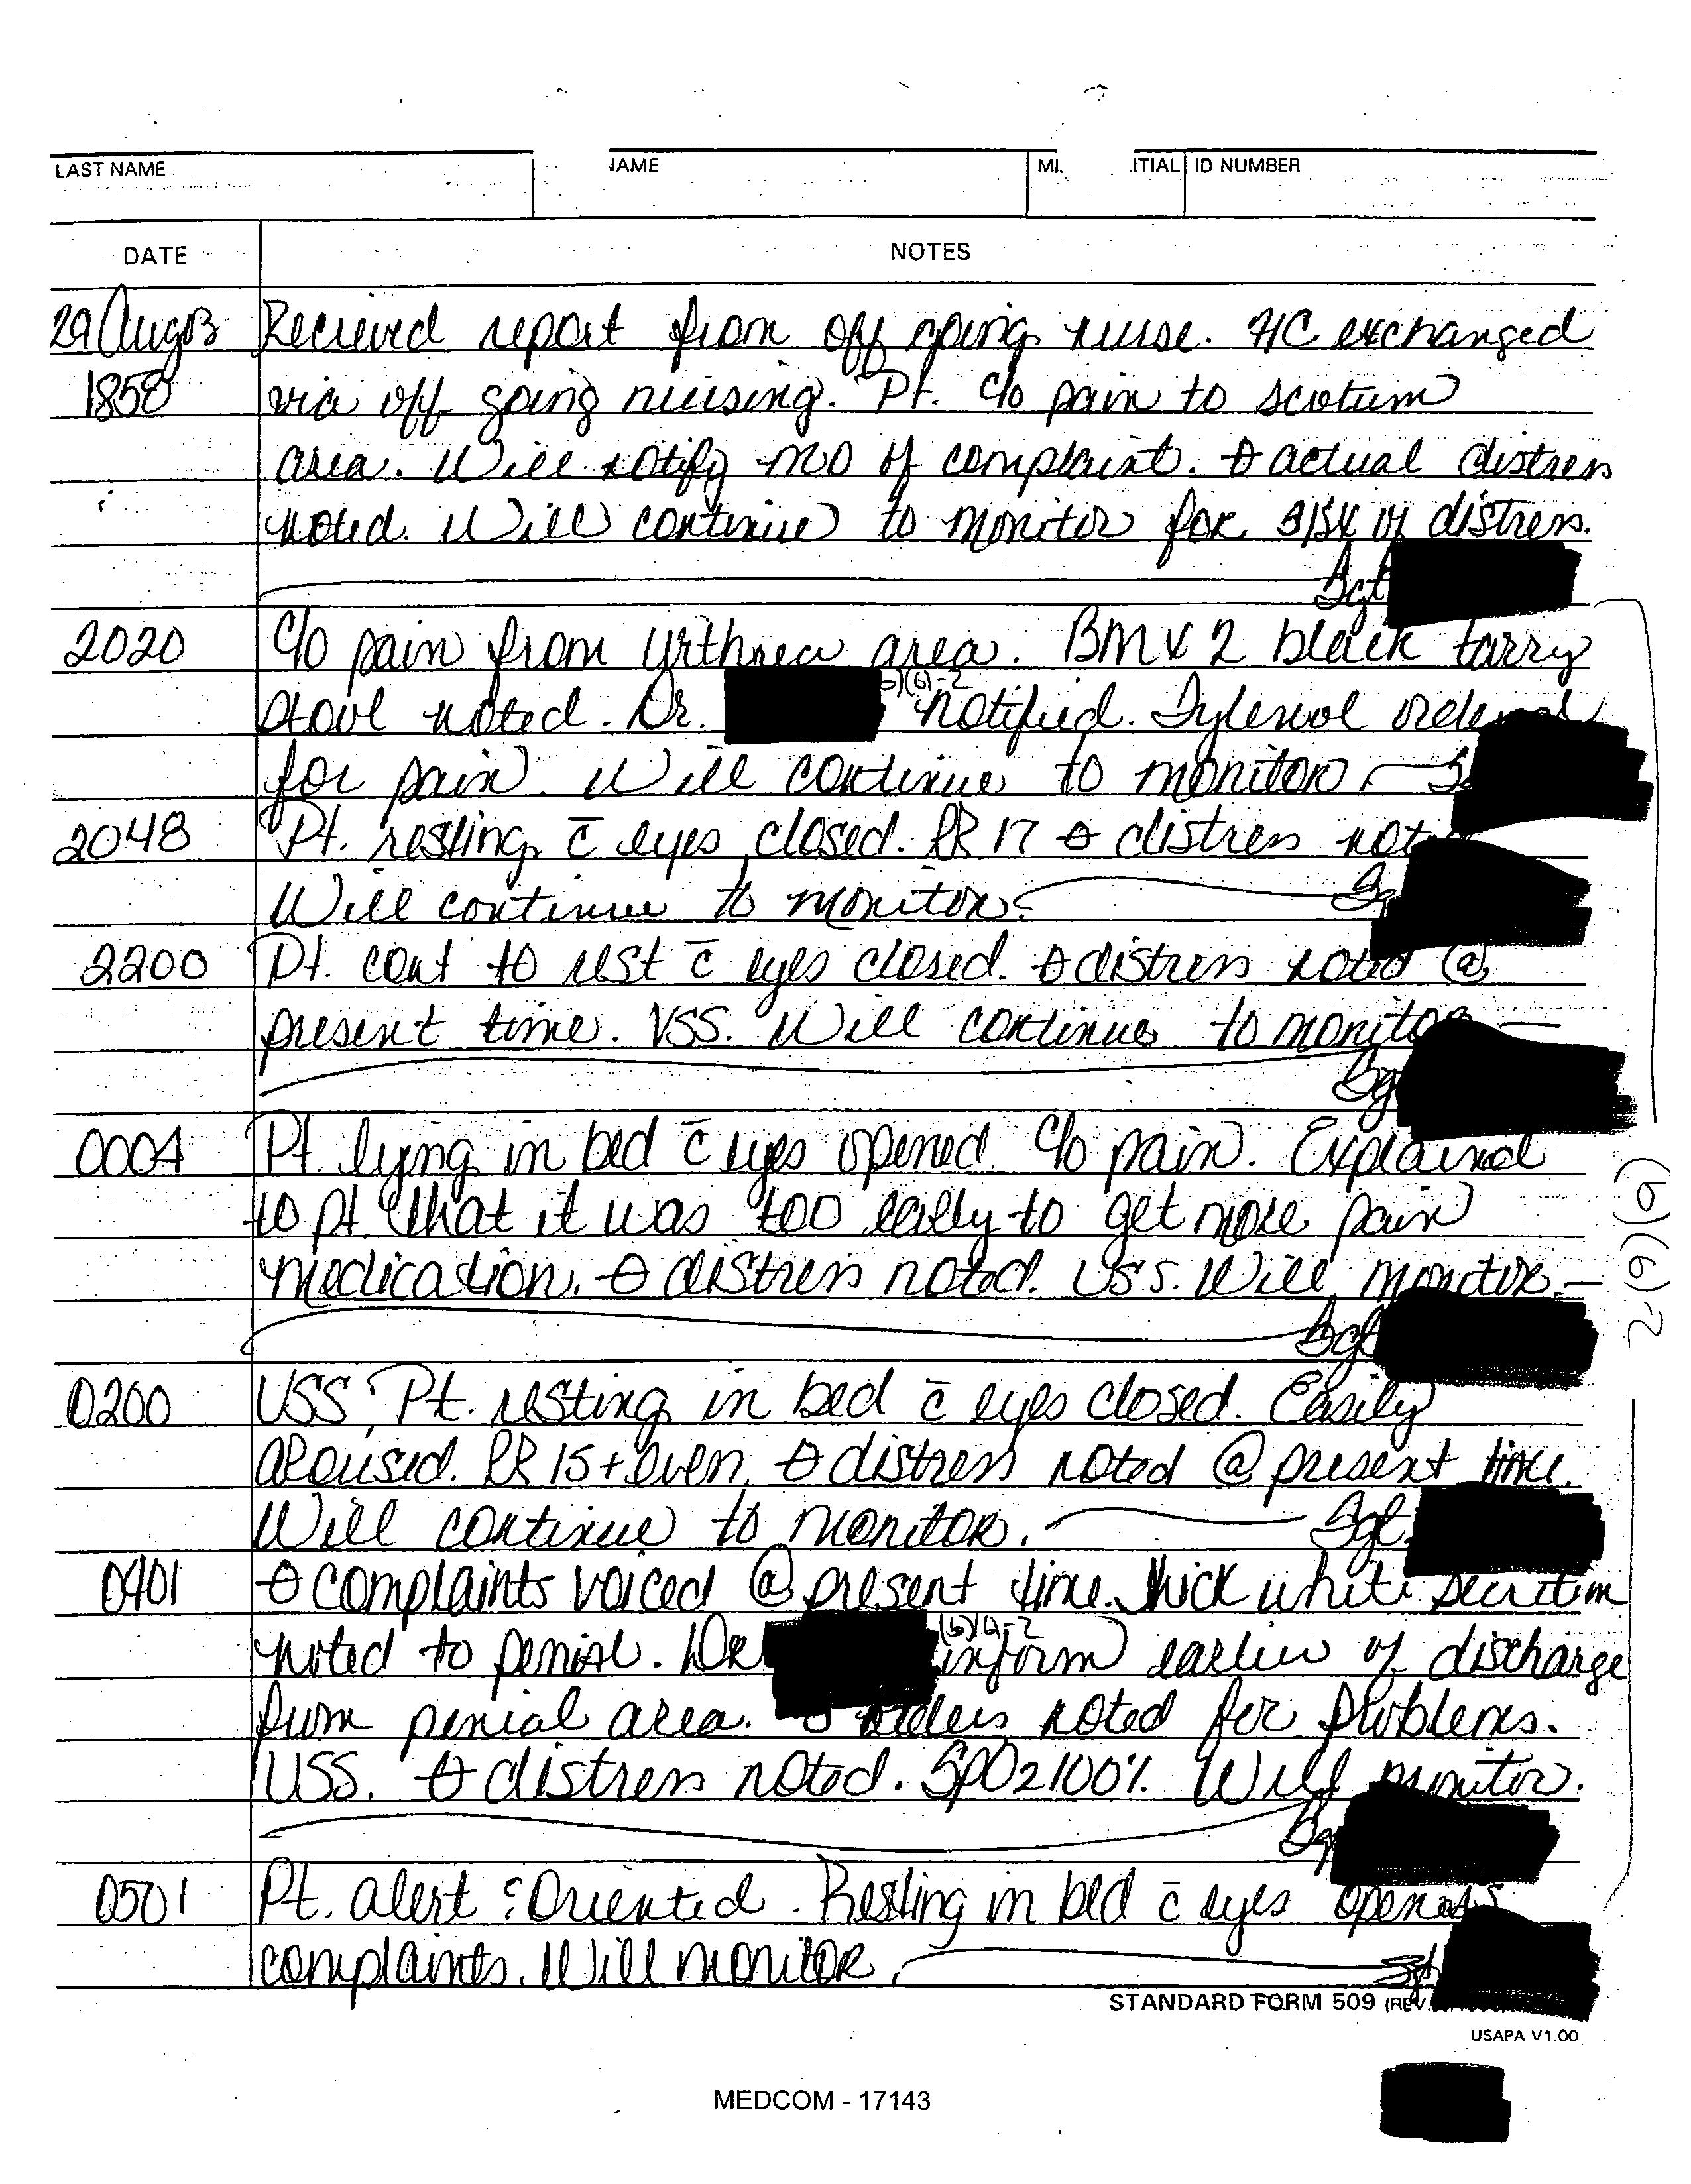 LAST NAME NAME MI. ITIAL ID NUMBER
DATE NOTES
29 Aug 03 Recieved report from off going nurse. exchanged
1858 via off going nursing. Pt. c/o pain to scrotum
area. Will notify MD of complaint. ⊖ actual distress
noted. Will continue to monitor for of distress.
Sgt
2020 c/o pain from urthrea area. BM x 2 black tarry
stool noted. Dr. (6)-2 notified. Tylenol
for pain. Will continue to monitor.
2048 Pt. resting c̄ eyes closed. RR 17 ⊖ distress
Will continue to monitor.
2200 Pt. cont to rest c̄ eyes closed. ⊖ distress noted @
present time. VSS. Will continue to monitor
0004 Pt. lying in bed c̄ eyes opened c/o pain. Explained
to pt. that it was too early to get more pain
medication. ⊖ distress noted. VSS. Will monitor.
Sgt
(b)(6)-2
0200 VSS. Pt. resting in bed c̄ eyes closed. Easily
aroused. RR 15 + even. ⊖ distress noted @ present time.
Will continue to monitor. Sgt.
0401 ⊖ complaints voiced @ present time. thick white secretion
noted to penial. Dr (b)(6)-2 inform earlier of discharge
from penial area. orders noted for problems.
VSS. ⊖ distress noted. SPO2 100%. Will monitor.
0501 Pt. alert & Oriented. Resting in bed c̄ eyes
complaints. Will monitor. Sgt
STANDARD FORM 509 (REV.
USAPA V1.00
MEDCOM - 17143